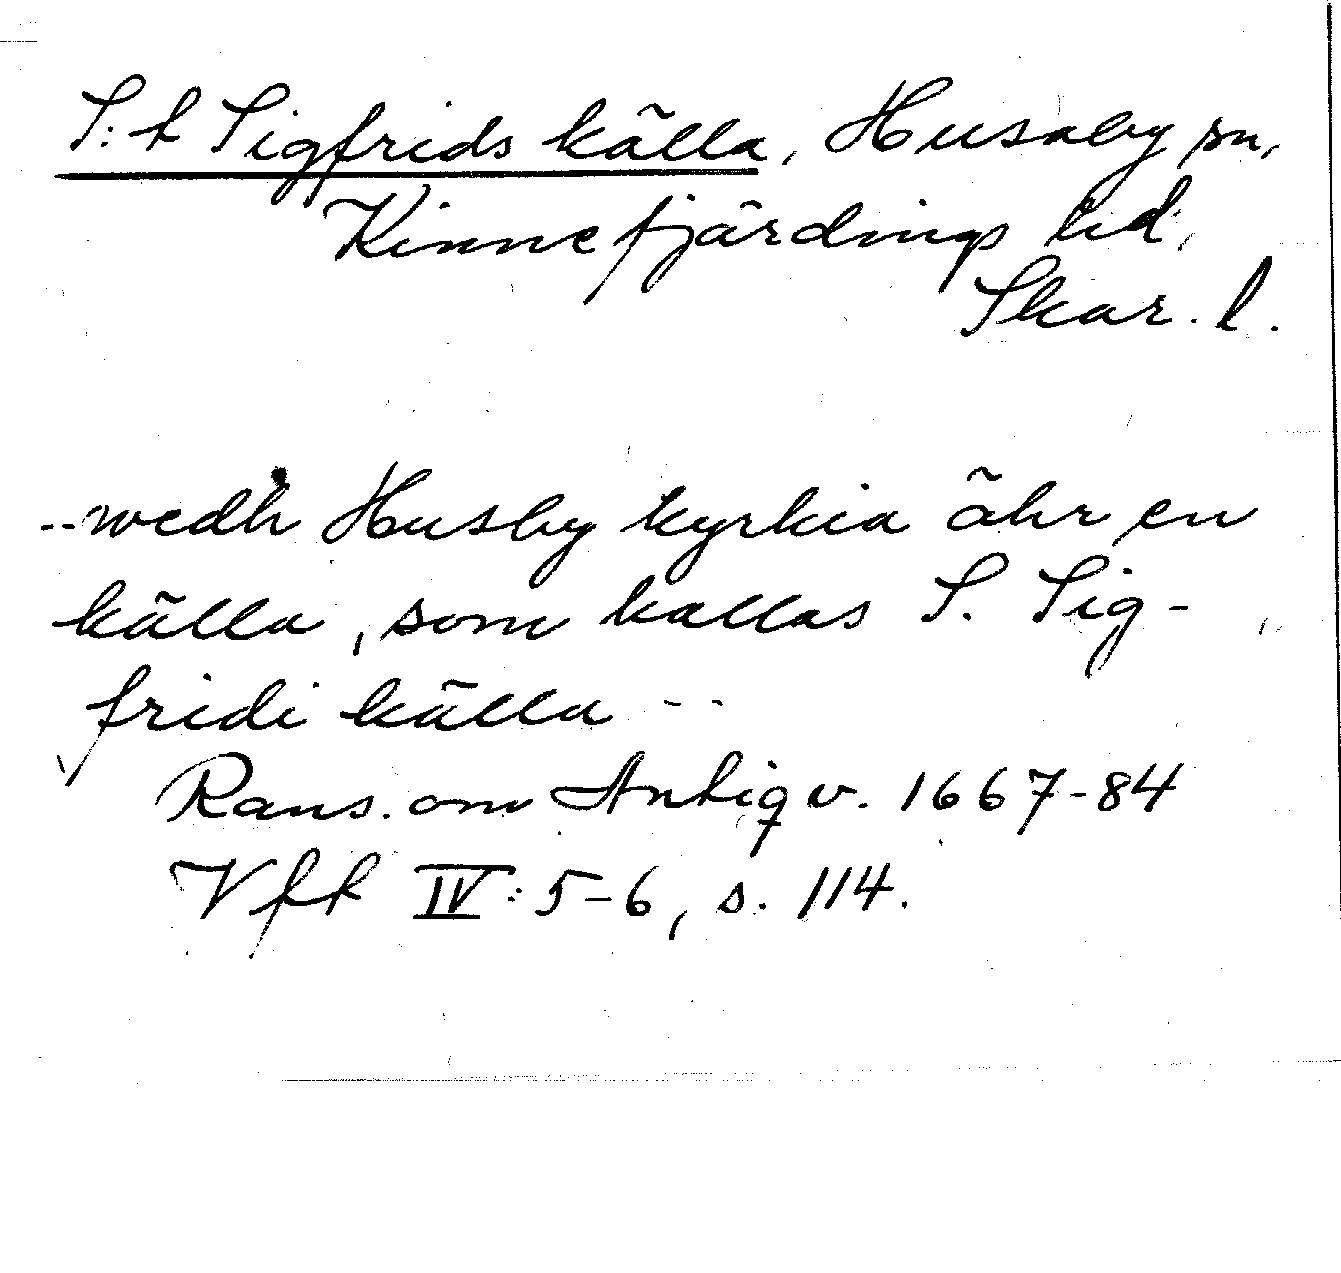 S:t Sigfrids källa, Husaby sn,
Kinnefjärdings hd,
Skar. l.
--wedh Husby kyrkia ähr en
källa, som kallas S. Sig-
fridi källa --
Rans. om Antiqv. 1667-84
Vft IV: 5-6, s. 114.